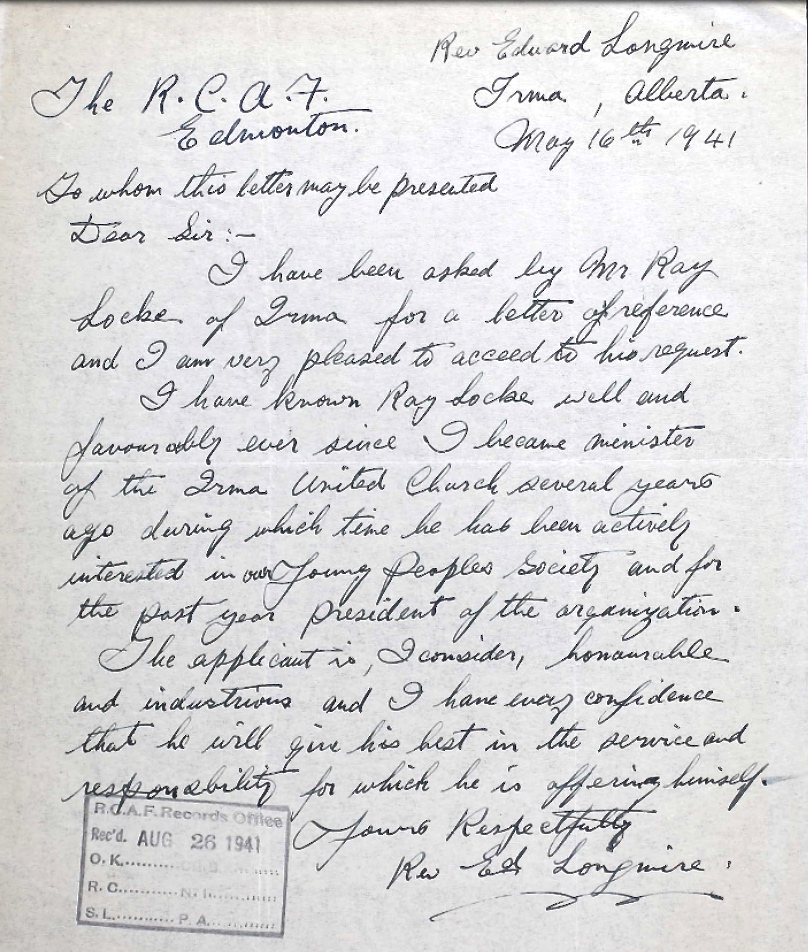 Rev Edward Longmire
The R.C.A.F.
Irma, Alberta.
Edmonton.
May 16th 1941
To whom this letter may be presented
Dear Sir:-
I have been asked by Mr Ray
Locke of Irma for a letter of reference
and I am very pleased to acceed to his request.
I have known Ray Locke well and
favourably ever since I became minister
of the Irma United Church several years
ago during which time he has been actively
interested in our Young Peoples Society and for
the past year president of the organization.
The applicant is, I consider, honourable
and industrious and I have every confidence
that he will give his best in the service and
responsibility for which he is offering himself.
Yours Respectfully
Rev Ed Longmire.
R.C.A.F. Records Office
Rec'd. AUG 26 1941
O.K.
R.C. N.R.
S.L. P.A.